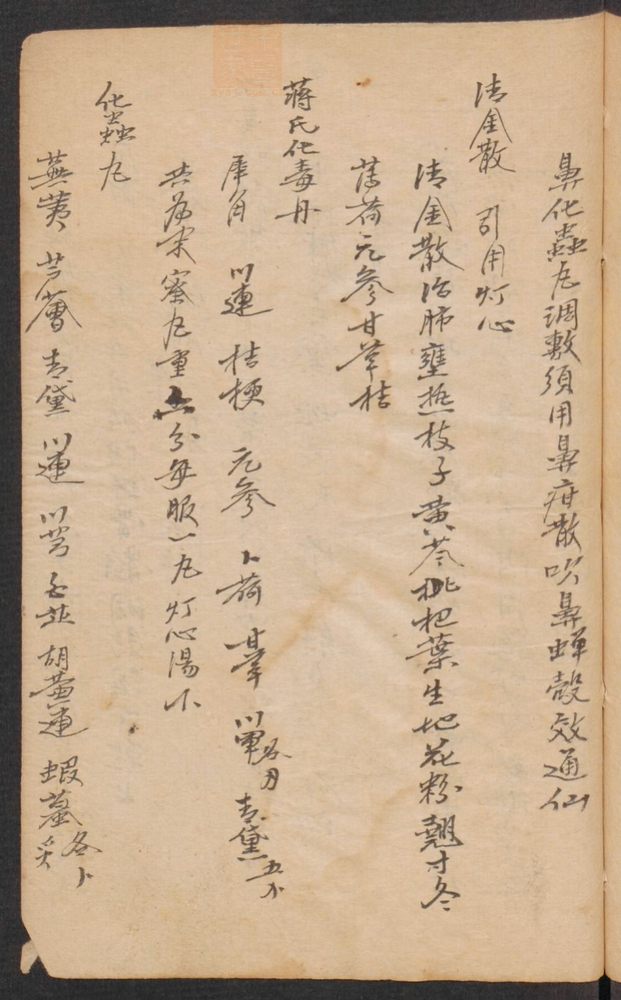 鼻化蟲尢調敷須用鼻疳散吹鼻蟬殼效通仙
清金散 引用灯心
清金散治肺壅熱枝子黃芩枇杷葉生地花粉翹寸冬
薄荷元參甘草桔
蔣氏化毒丹
犀角 川連 桔梗 元參 卜荷 甘草 川軍各 青黛五
共為末蜜尢重六分每服一尢灯心湯下
化蟲尢
蕪荑 芦薈 青黛 川連 川芎 白芷 胡黃連 蝦蟇 各